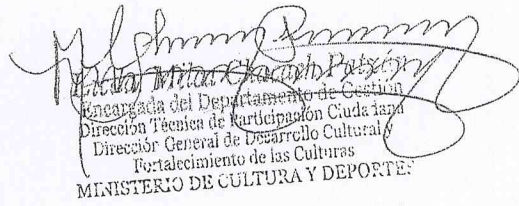 Encargada del Departamento de Gestión
Dirección Técnica de Participación Ciudadana
Dirección General de Desarrollo Cultural y
Fortalecimiento de las Culturas
MINISTERIO DE CULTURA Y DEPORTES